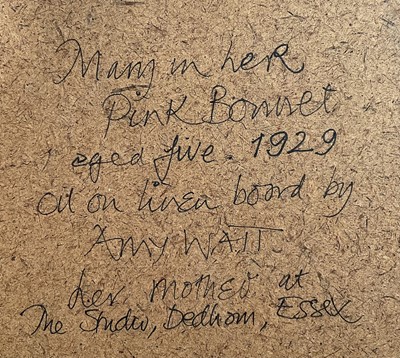 Mary in her
Pink Bonnet
aged five. 1929
oil on linen board by
AMY WATT.
her mother at
The Studio, Dedham, Essex